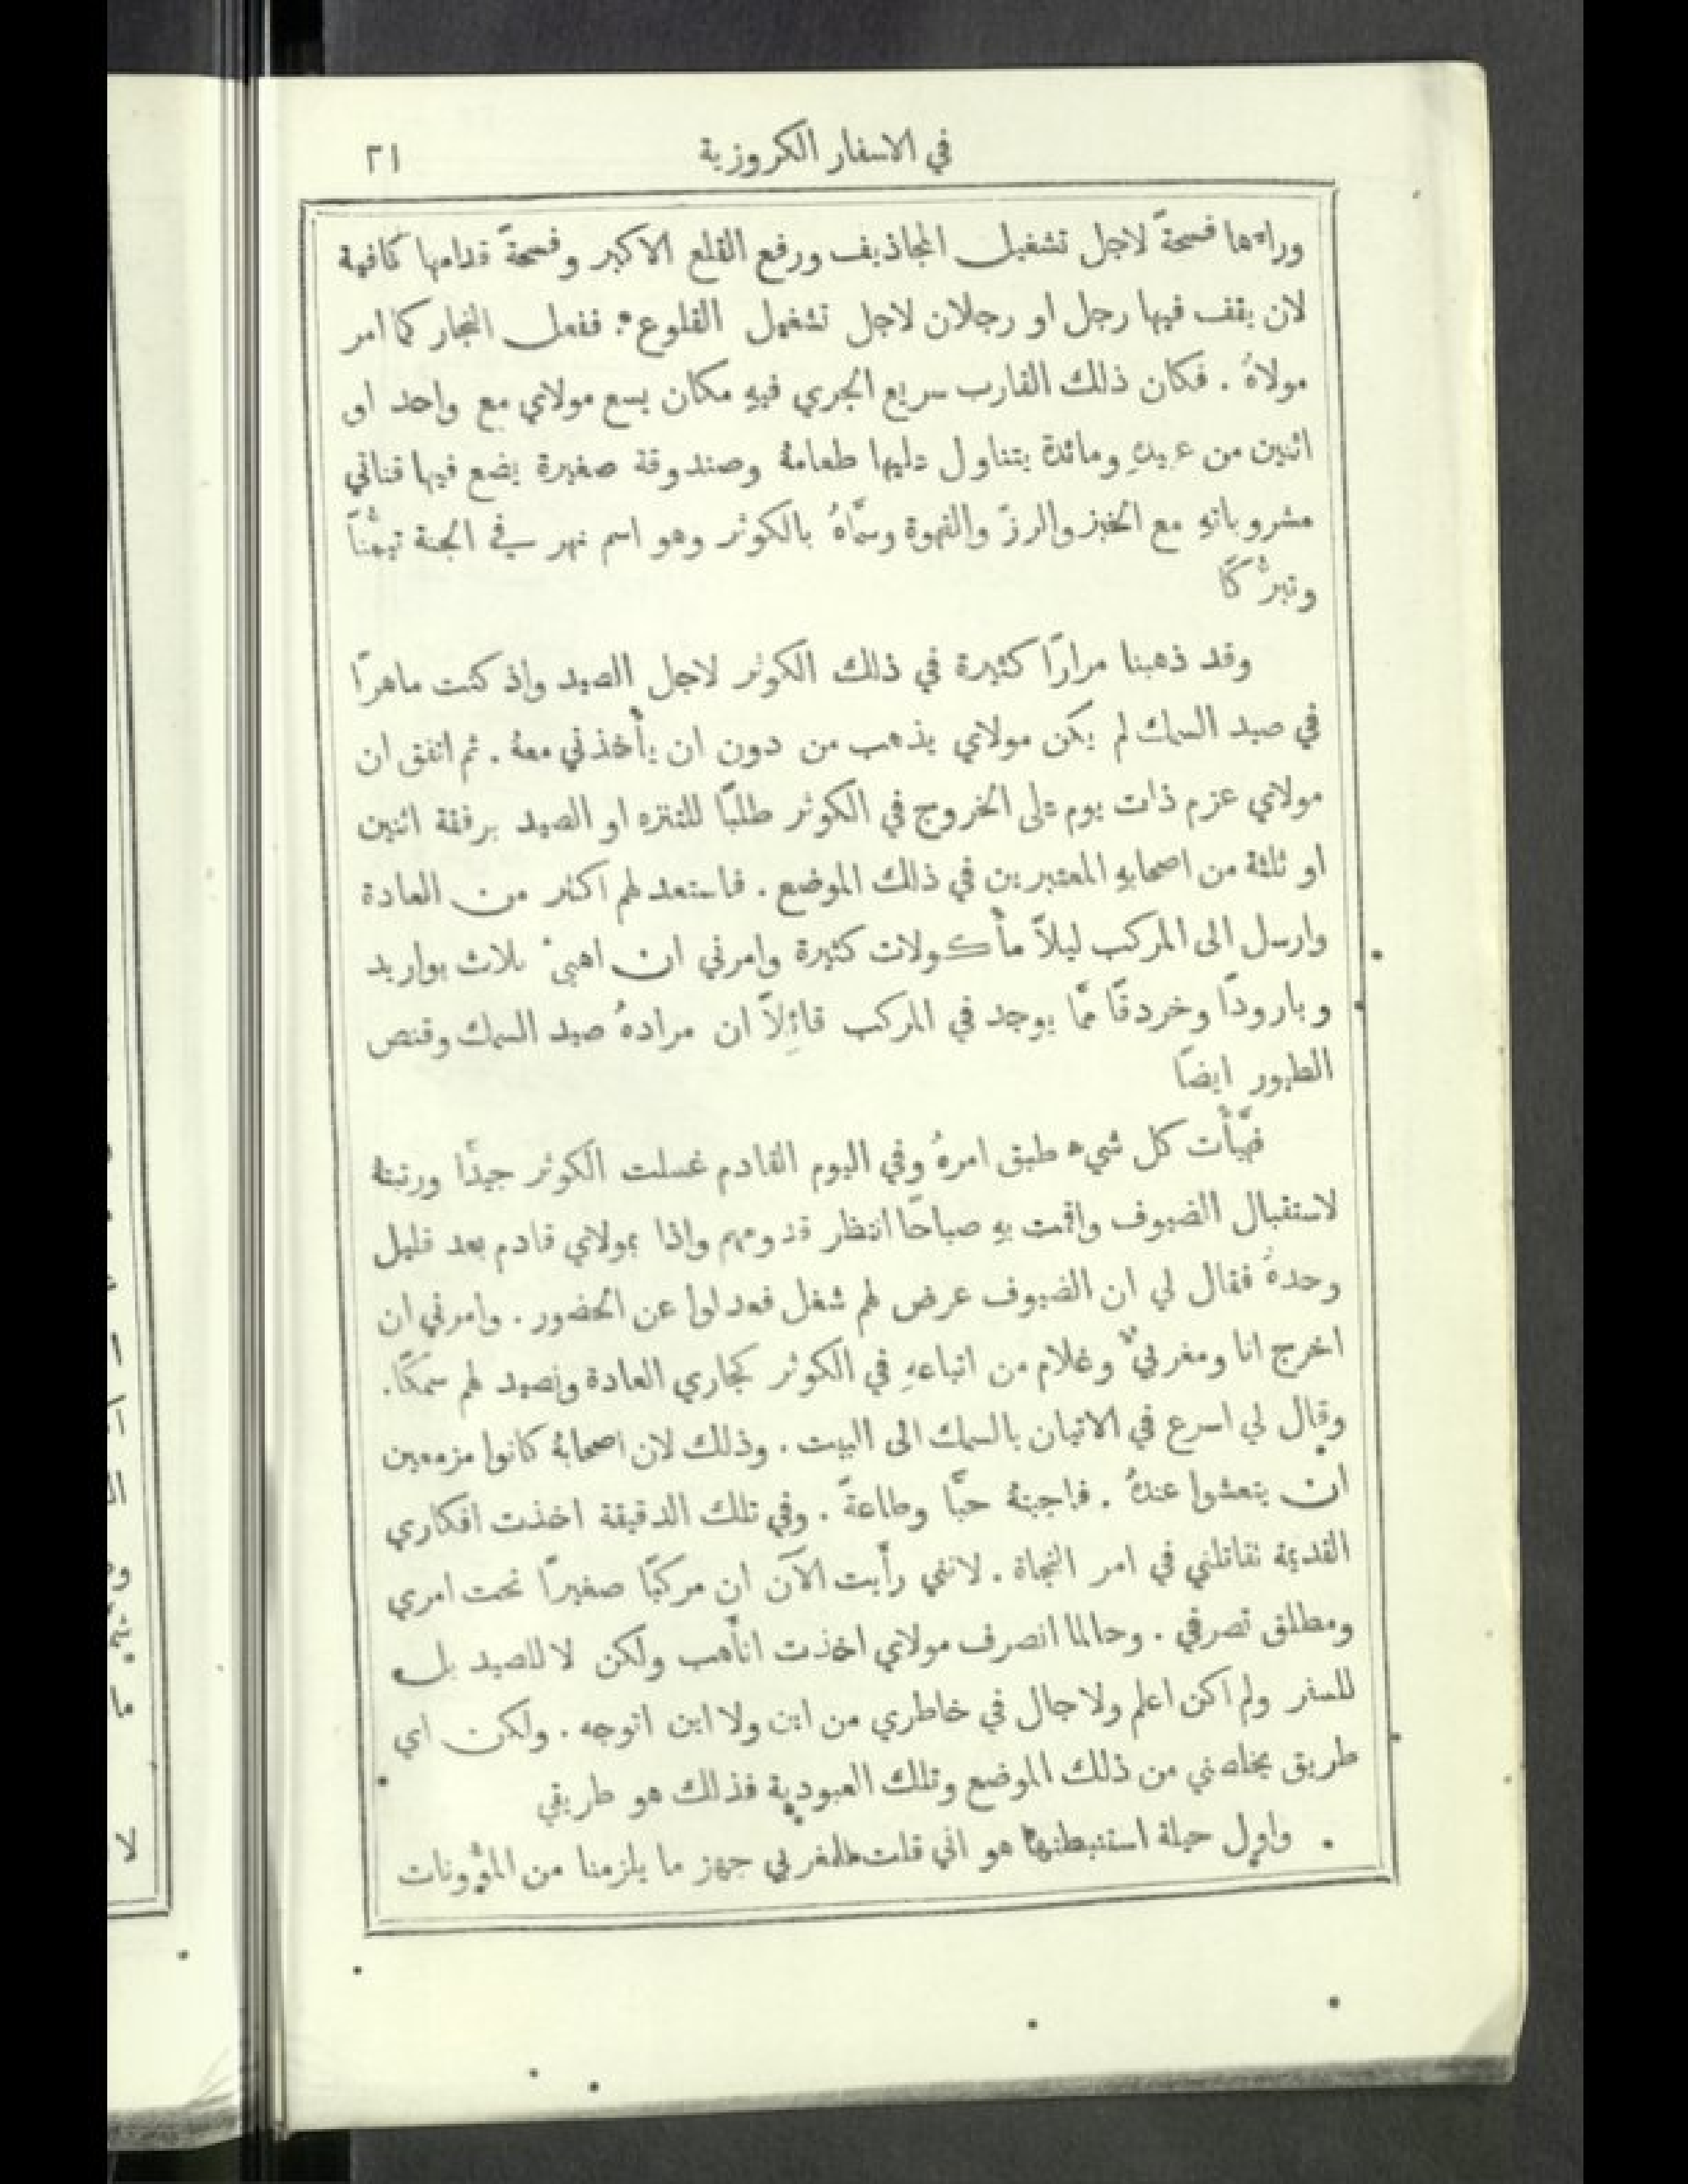 في الاسفار الكروزية ٢١
وراءها فسحةً لاجل تشغيل المجاذيف ورفع القلع الاكبر وفسحةً قدامها كافية
لان يقف فيها رجل او رجلان لاجل تشغيل القلوع. ففعل النجار كما امر
مولاهُ. فكان ذلك القارب سريع الجري فيهِ مكان يسع مولاي مع واحد او
اثنين من عبيدهِ ومائدة يتناول عليها طعامهُ وصندوقة صغيرة يضع فيها قناني
مشروباتهِ مع الخبز والرزّ والقهوة وسمَّاهُ بالكوثر وهو اسم نهر في الجنة تيمُّنًا
وتبرُّكًا
وقد ذهبنا مرارًا كثيرة في ذلك الكوثر لاجل الصيد واذ كنت ماهرًا
في صيد السمك لم يكن مولاي يذهب من دون ان يأْخذني معهُ. ثم اتفق ان
مولاي عزم ذات يوم على الخروج في الكوثر طلبًا للتنزه او الصيد برفقة اثنين
او ثلثة من اصحابهِ المعتبرين في ذلك الموضع. فاستعد لهم اكثر من العادة
وارسل الى المركب ليلاً مأْكولات كثيرة وامرني ان اهيئ ثلاث بواريد
وبارودًا وخردقًا ممَّا يوجد في المركب قائِلاً ان مرادهُ صيد السمك وقنص
الطيور ايضًا
فهيَّأْت كل شيء طبق امرهُ وفي اليوم القادم غسلت الكوثر جيدًا ورتبتهُ
لاستقبال الضيوف واقمت بهِ صباحًا انتظر قدومهم واذا بمولاي قادم بعد قليل
وحدهُ فقال لي ان الضيوف عرض لهم شغل فعدلوا عن الحضور. وامرني ان
اخرج انا ومغربيٌّ وغلام من اتباعهِ في الكوثر كجاري العادة ونصيد لهم سمكًا.
وقال لي اسرع في الاتيان بالسمك الى البيت. وذلك لان اصحابهُ كانوا مزمعين
ان يتعشوا عندهُ. فاجبتهُ حبًّا وطاعةً. وفي تلك الدقيقة اخذت افكاري
القديمة تقاتلني في امر النجاة. لانني رأَيت الآن ان مركبًا صغيرًا تحت امري
ومطلق تصرفي. وحالما انصرف مولاي اخذت اتأَهب ولكن لا للصيد بل
للسفر ولم اكن اعلم ولا جال في خاطري من اين ولا اين اتوجه. ولكن اي
طريق يخلصني من ذلك الموضع وتلك العبودية فذلك هو طريقي
واول حيلة استنبطتها هو اني قلت للمغربي جهز ما يلزمنا من المؤُونات